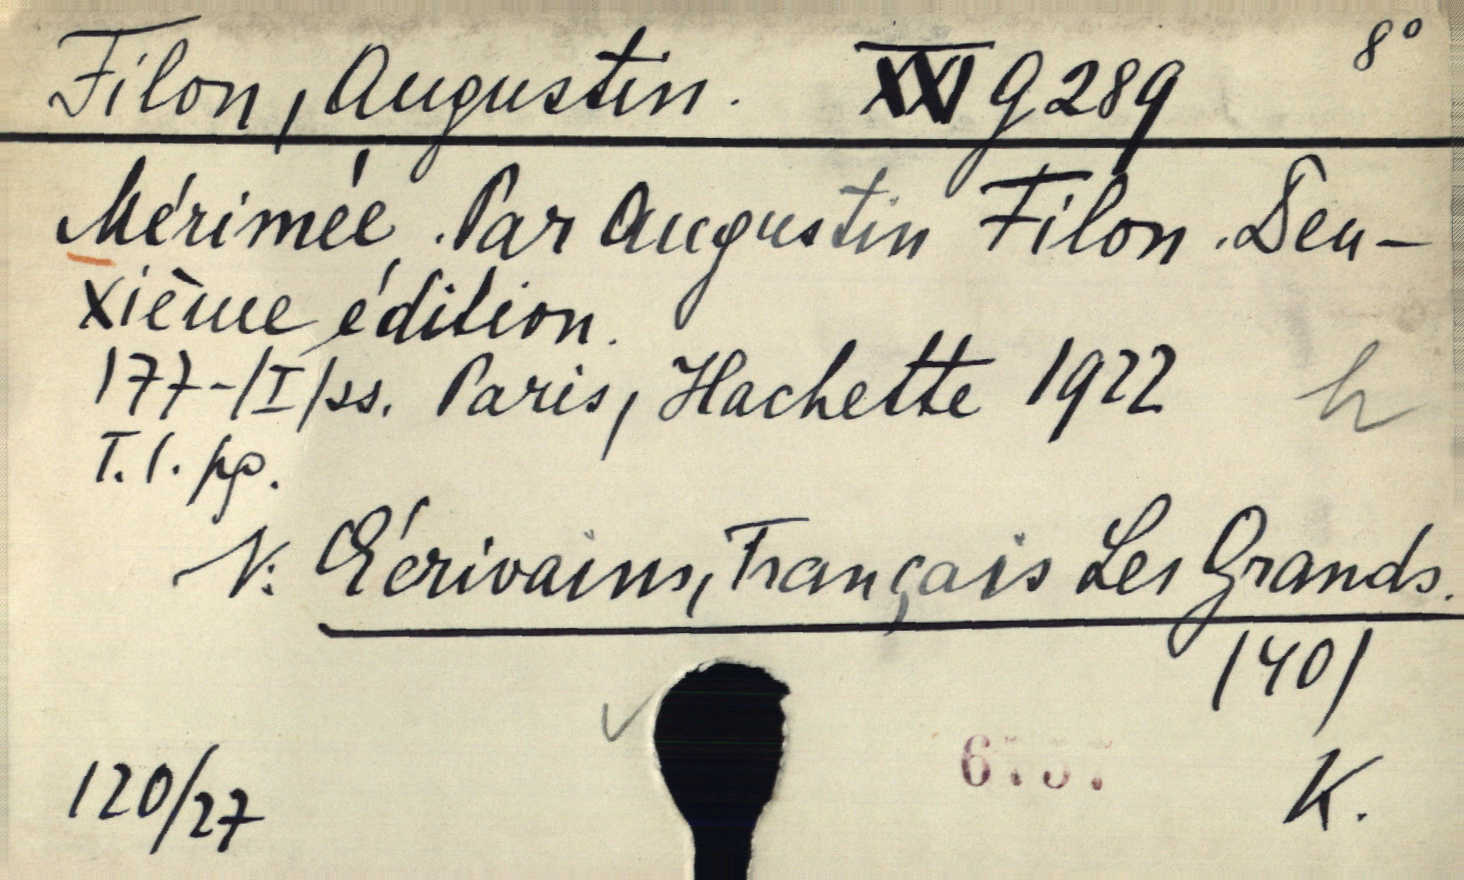 Filon, Augustin. XXI G 289 8°
Mérimée. Par Augustin Filon. Deu-
xième édition.
177-/I/ss. Paris, Hachette 1922 h
T. l. pp.
V: Écrivains, Français Les Grands.
/40/
120/27 K.